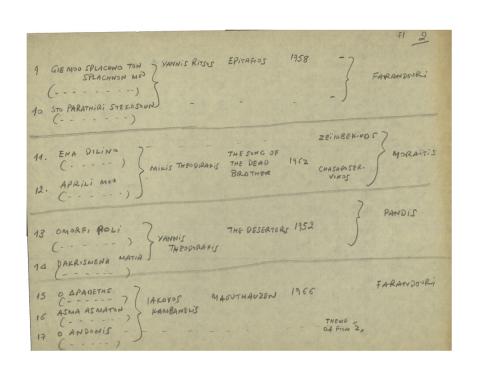 51 2
9 GIE MOO SPLACHNO TON YANNIS RITSOS EPITAFIOS 1958 -
SPLACHNON MOO
(- - - - - - -) FARANDOURI
10 STO PARATHIRI STEKOSOUN - - - -
(- - - - - -)
ZEIMBEKIKOS
11. ENA DILINO - THE SONG OF
(- - - - -) MIKIS THEODORAKIS THE DEAD 1962 CHASAPOSER- MORAITIS
12. APRILI MOO BROTHER VIKOS
(- - - - -)
PANDIS
13 OMORFI POLI
(- - - - - -) YANNIS THE DESERTORS 1952
THEODORAKIS
14 DAKRISMENA MATIA
(- - - - - -)
FARANDOURI
15 O DRAPETIS
(- - - - - -) IAKOVOS MAOUTHAUZEN 1966
16 ASMA ASMATON KAMBANELIS
(- - - - - -)
17 O ANDONIS - - - - THEME
(- - - - - -) OF FILM Z,